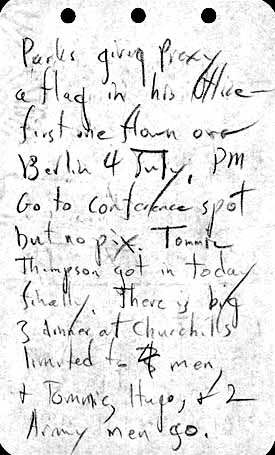 Parks giving Prexy
a flag in his Office
first one flown over
Berlin 4 July, PM
Go to conference spot
but no pix. Tommie
Thompson got in today
finally. There is big
3 dinner at Churchills
limited to men,
+ Tommie, Hugo, + 2
Army men go.